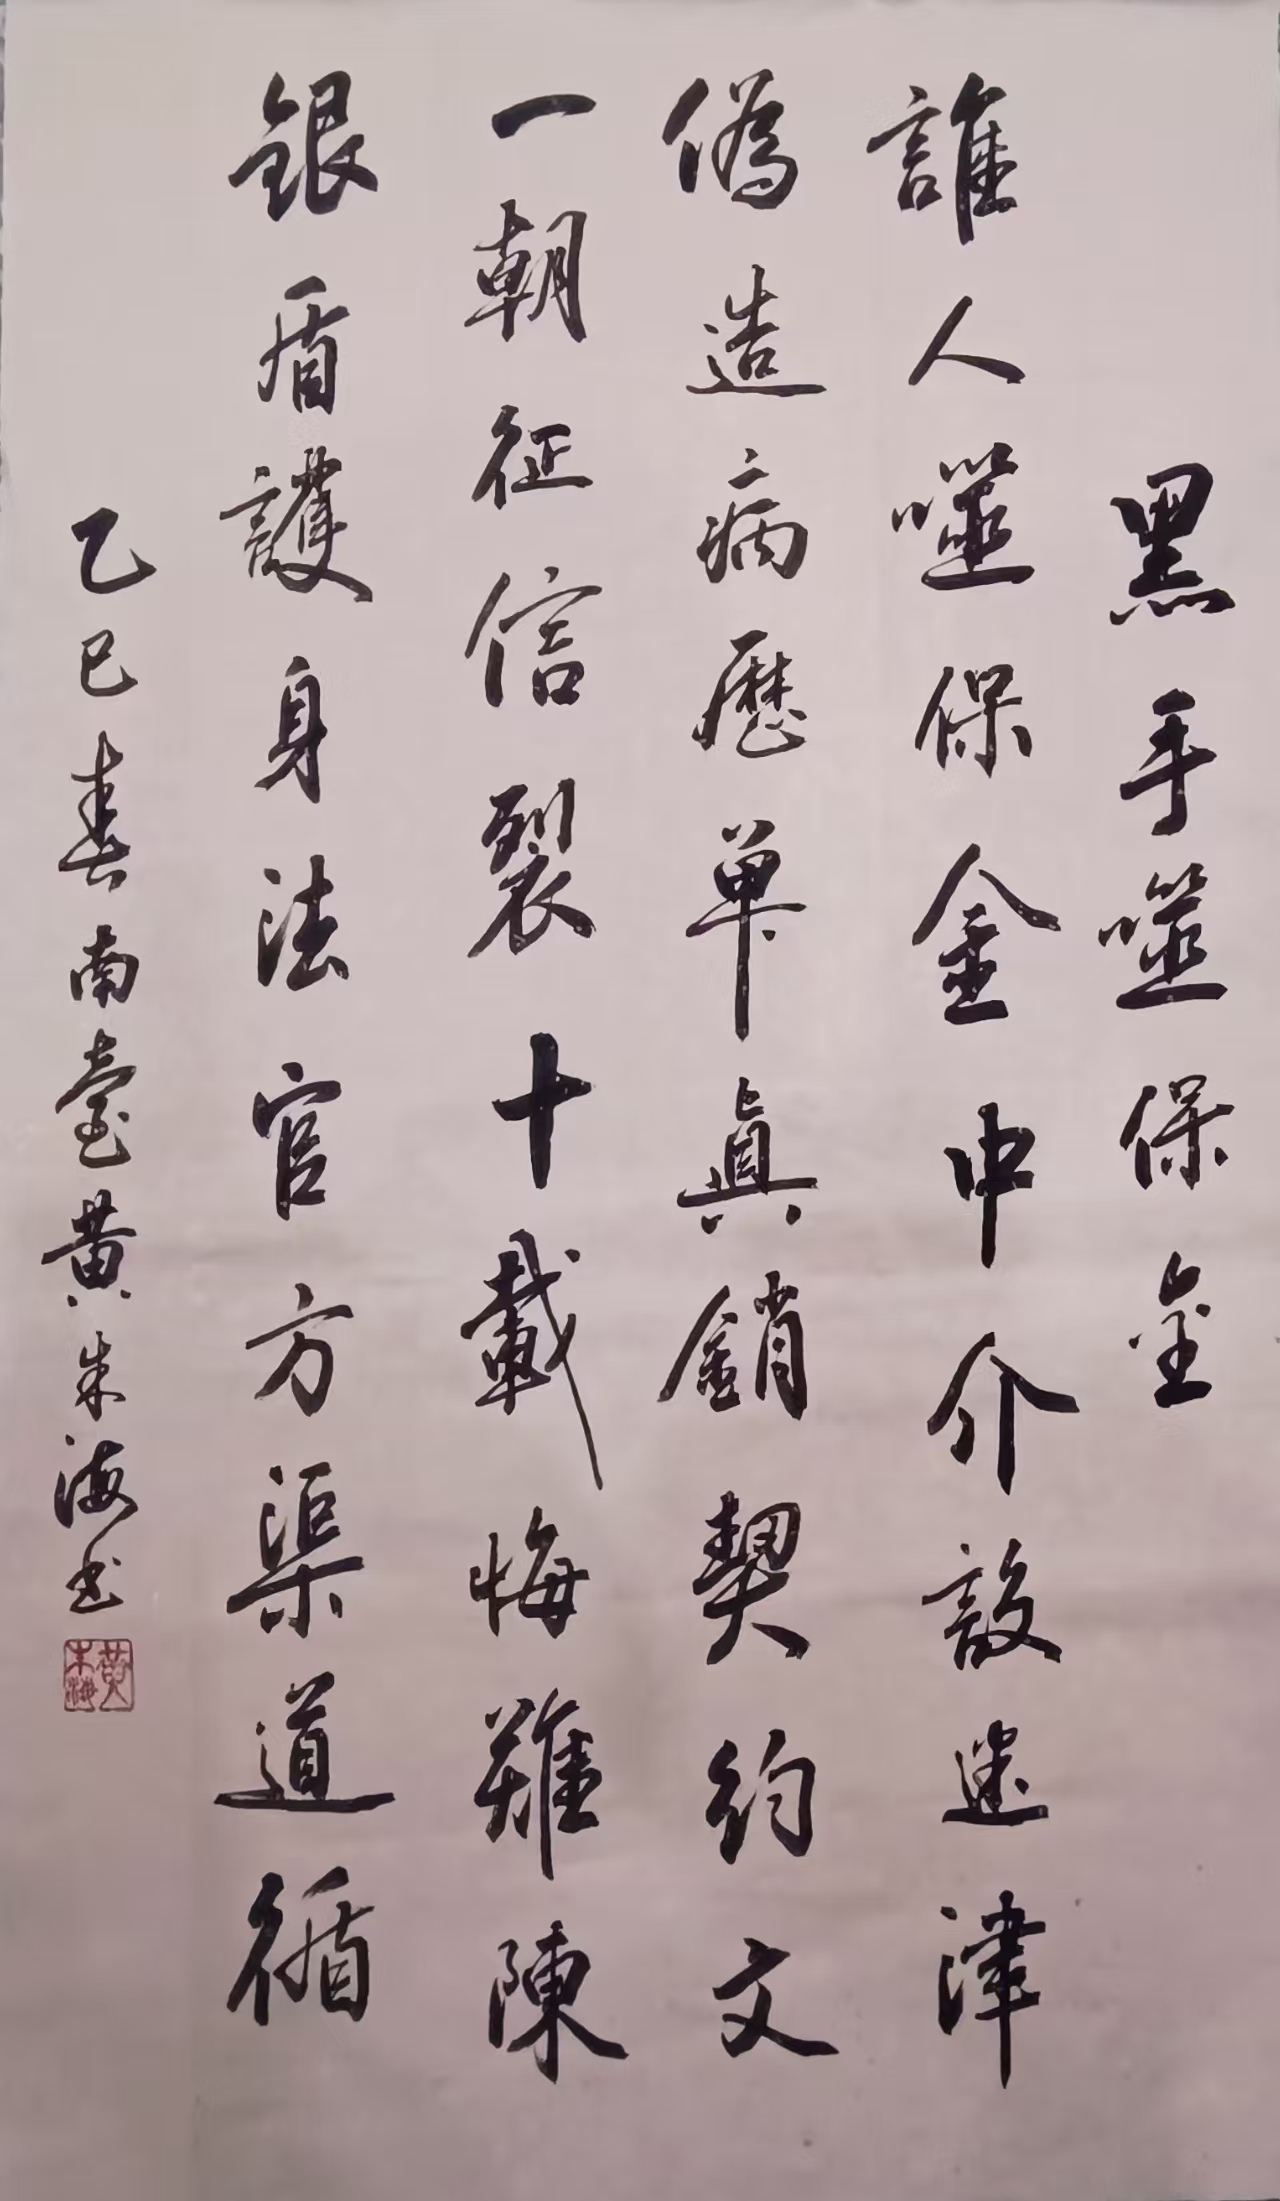 黑手噬保金
誰人噬保金中介設迷津
偽造病歷單真銷契約文
一朝征信裂十載悔難陳
銀盾護身法官方渠道循
乙巳春南臺黄朱海书
黄朱海